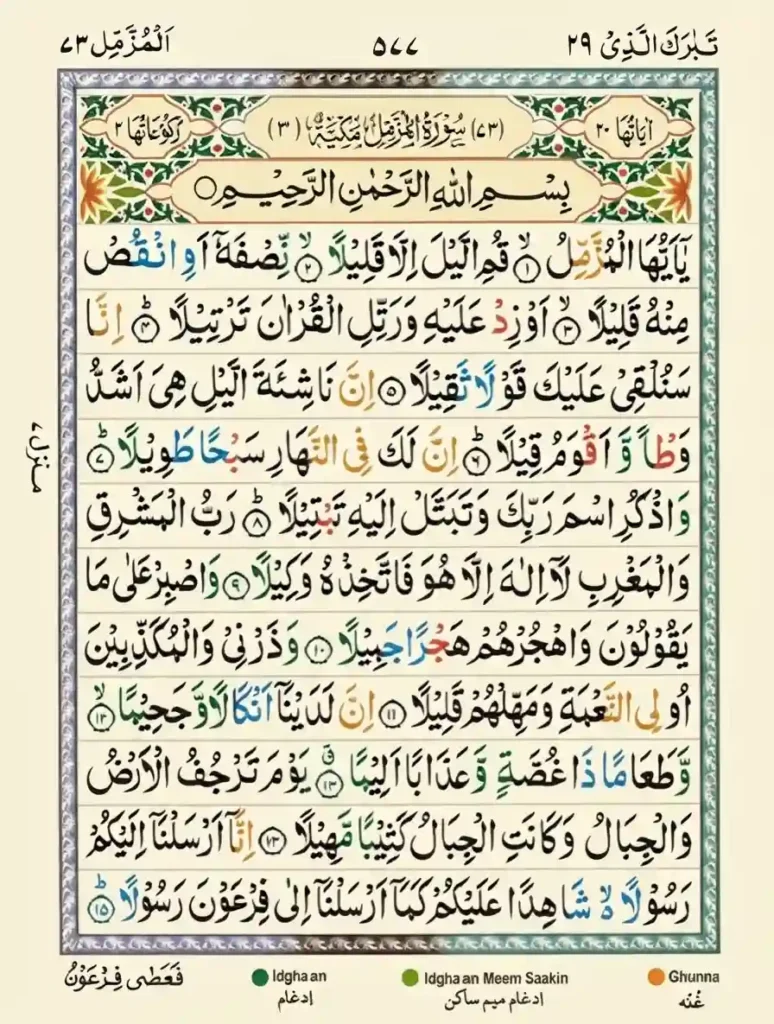 تَبٰرَكَ الَّذِیْ ٢٩
٥٧٧
اَلْمُزَّمِّل ٧٣
اٰیَاتُهَا ٢٠
(٧٣) سُوْرَةُ الْمُزَّمِّلِ مَكِّیَّةٌ (٣)
رُكُوْعَاتُهَا ٢
بِسْمِ اللهِ الرَّحْمٰنِ الرَّحِیْمِ
یٰۤاَیُّهَا الْمُزَّمِّلُ ۙ‏ ١ قُمِ الَّیْلَ اِلَّا قَلِیْلًا ۙ‏ ٢ نِّصْفَهٗۤ اَوِ انْقُصْ
مِنْهُ قَلِیْلًا ۙ‏ ٣ اَوْ زِدْ عَلَیْهِ وَرَتِّلِ الْقُرْاٰنَ تَرْتِیْلًا ؕ‏ ٤ اِنَّا
سَنُلْقِیْ عَلَیْكَ قَوْلًا ثَقِیْلًا ٥ اِنَّ نَاشِئَةَ الَّیْلِ هِیَ اَشَدُّ
وَطْاً وَّ اَقْوَمُ قِیْلًا ؕ‏ ٦ اِنَّ لَكَ فِی النَّهَارِ سَبْحًا طَوِیْلًا ؕ‏ ٧
وَاذْكُرِ اسْمَ رَبِّكَ وَتَبَتَّلْ اِلَیْهِ تَبْتِیْلًا ؕ‏ ٨ رَبُّ الْمَشْرِقِ
وَالْمَغْرِبِ لَاۤ اِلٰهَ اِلَّا هُوَ فَاتَّخِذْهُ وَكِیْلًا ٩ وَاصْبِرْ عَلٰی مَا
یَقُوْلُوْنَ وَاهْجُرْهُمْ هَجْرًا جَمِیْلًا ١٠ وَذَرْنِیْ وَالْمُكَذِّبِیْنَ
اُولِی النَّعْمَةِ وَمَهِّلْهُمْ قَلِیْلًا ١١ اِنَّ لَدَیْنَاۤ اَنْكَالًا وَّجَحِیْمًا ۙ‏ ١٢
وَّطَعَامًا ذَا غُصَّةٍ وَّعَذَابًا اَلِیْمًا ١٣ یَوْمَ تَرْجُفُ الْاَرْضُ
وَالْجِبَالُ وَكَانَتِ الْجِبَالُ كَثِیْبًا مَّهِیْلًا ١٤ اِنَّاۤ اَرْسَلْنَاۤ اِلَیْكُمْ
رَسُوْلًا ۙ۬ شَاهِدًا عَلَیْكُمْ كَمَاۤ اَرْسَلْنَاۤ اِلٰی فِرْعَوْنَ رَسُوْلًا ؕ‏ ١٥
منزل ٧
فَعَصٰی فِرْعَوْنُ
Idghaan
ادغام
Idghaan Meem Saakin
ادغام میم ساکن
Ghunna
غُنّه